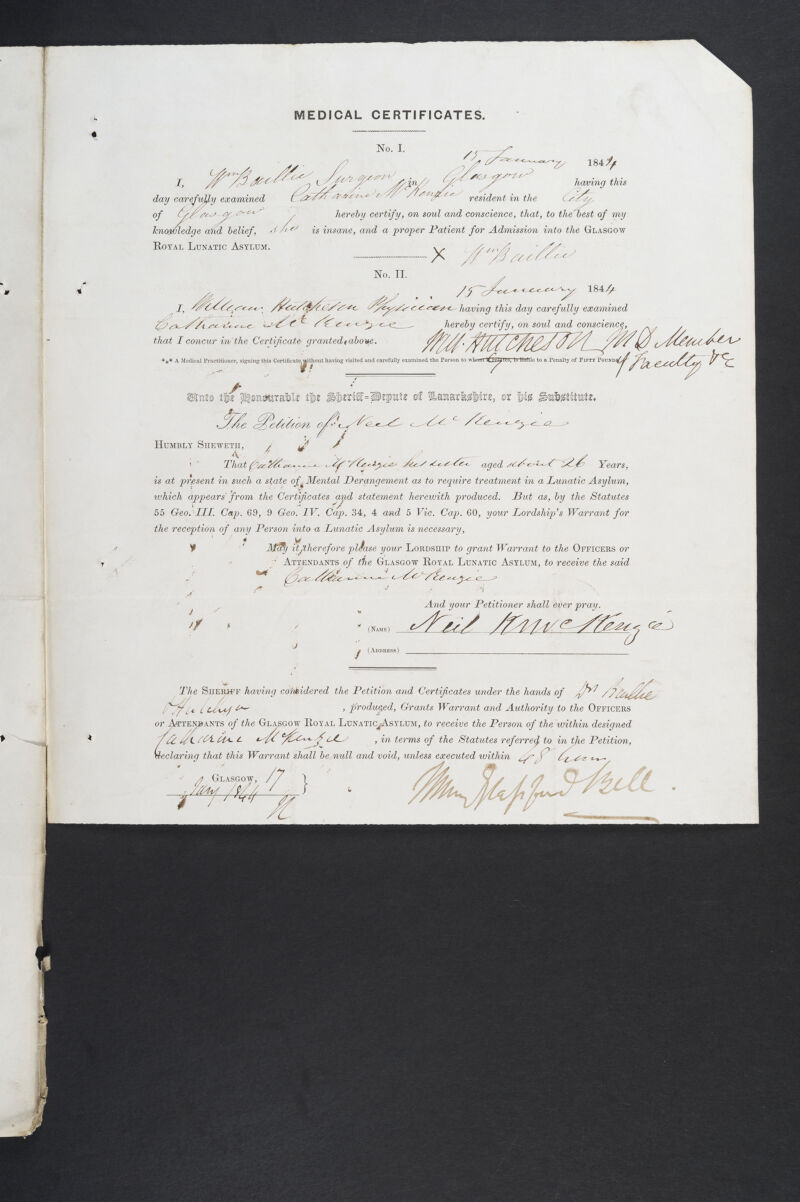 MEDICAL CERTIFICATES.
No. I.
15 January 1844
I, Wm Baillie Surgeon in Glasgow having this
day carefully examined Catharine McKenzie resident in the City
of Glasgow hereby certify, on soul and conscience, that, to the best of my
knowledge and belief, she is insane, and a proper Patient for Admission into the GLASGOW
ROYAL LUNATIC ASYLUM.
X Wm Baillie
No. II.
15 January 1844
I, William Hutcheson Physician having this day carefully examined
Catharine McKenzie hereby certify, on soul and conscience,
that I concur in the Certificate granted above.
Will. Hutcheson MD Member
of Faculty &c
*** A Medical Practitioner, signing this Certificate without having visited and carefully examined the Person to whom it relates, is liable to a Penalty of FIFTY POUNDS.
Unto the Honourable the Sheriff=Depute of Lanarkshire, or his Substitute.
The Petition of Neil McKenzie
HUMBLY SHEWETH,
That Catharine McKenzie his sister aged about 26 Years,
is at present in such a state of Mental Derangement as to require treatment in a Lunatic Asylum,
which appears from the Certificates and statement herewith produced. But as, by the Statutes
55 Geo. III. Cap. 69, 9 Geo. IV. Cap. 34, 4 and 5 Vic. Cap. 60, your Lordship's Warrant for
the reception of any Person into a Lunatic Asylum is necessary,
May it therefore please your LORDSHIP to grant Warrant to the OFFICERS or
ATTENDANTS of the GLASGOW ROYAL LUNATIC ASYLUM, to receive the said
Catharine McKenzie
And your Petitioner shall ever pray.
(NAME) Neil McKenzie
(ADDRESS)
The SHERIFF having considered the Petition and Certificates under the hands of Drs Baillie
& Hutcheson, produced, Grants Warrant and Authority to the OFFICERS
or ATTENDANTS of the GLASGOW ROYAL LUNATIC ASYLUM, to receive the Person of the within designed
Catharine McKenzie, in terms of the Statutes referred to in the Petition,
declaring that this Warrant shall be null and void, unless executed within 48 hours
GLASGOW, 17
Jany 1844
Henry Glassford Bell.